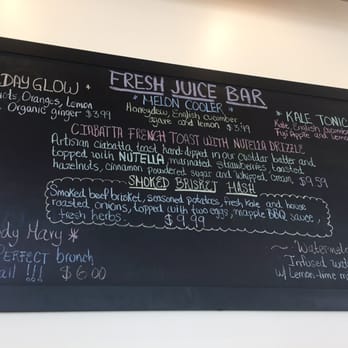 DAY GLOW
FRESH JUICE BAR
Oranges, Lemon
Organic ginger $3.99
"MELON COOLER"
Honeydew, English cucumber
and lemon $3.99
KALE TONIC
Kale, English cucumber
Fuji Apple and Lemon
CIABATTA FRENCH TOAST WITH NUTELLA DRIZZLE
Artisan ciabatta toast hand-dipped in our custard batter and
topped with NUTELLA, marinated strawberries, toasted
hazelnuts, cinnamon powdered sugar and whipped cream. $9.59
SMOKED BRISKET HASH
Smoked beef brisket, seasoned potatoes, fresh kale and house
roasted onions, topped with two eggs, maple BBQ sauce,
fresh herbs. $9.99
dy Mary
PERFECT brunch
ail !!! $6.00
~ Waterme
Infused wat
w/ Lemon-time